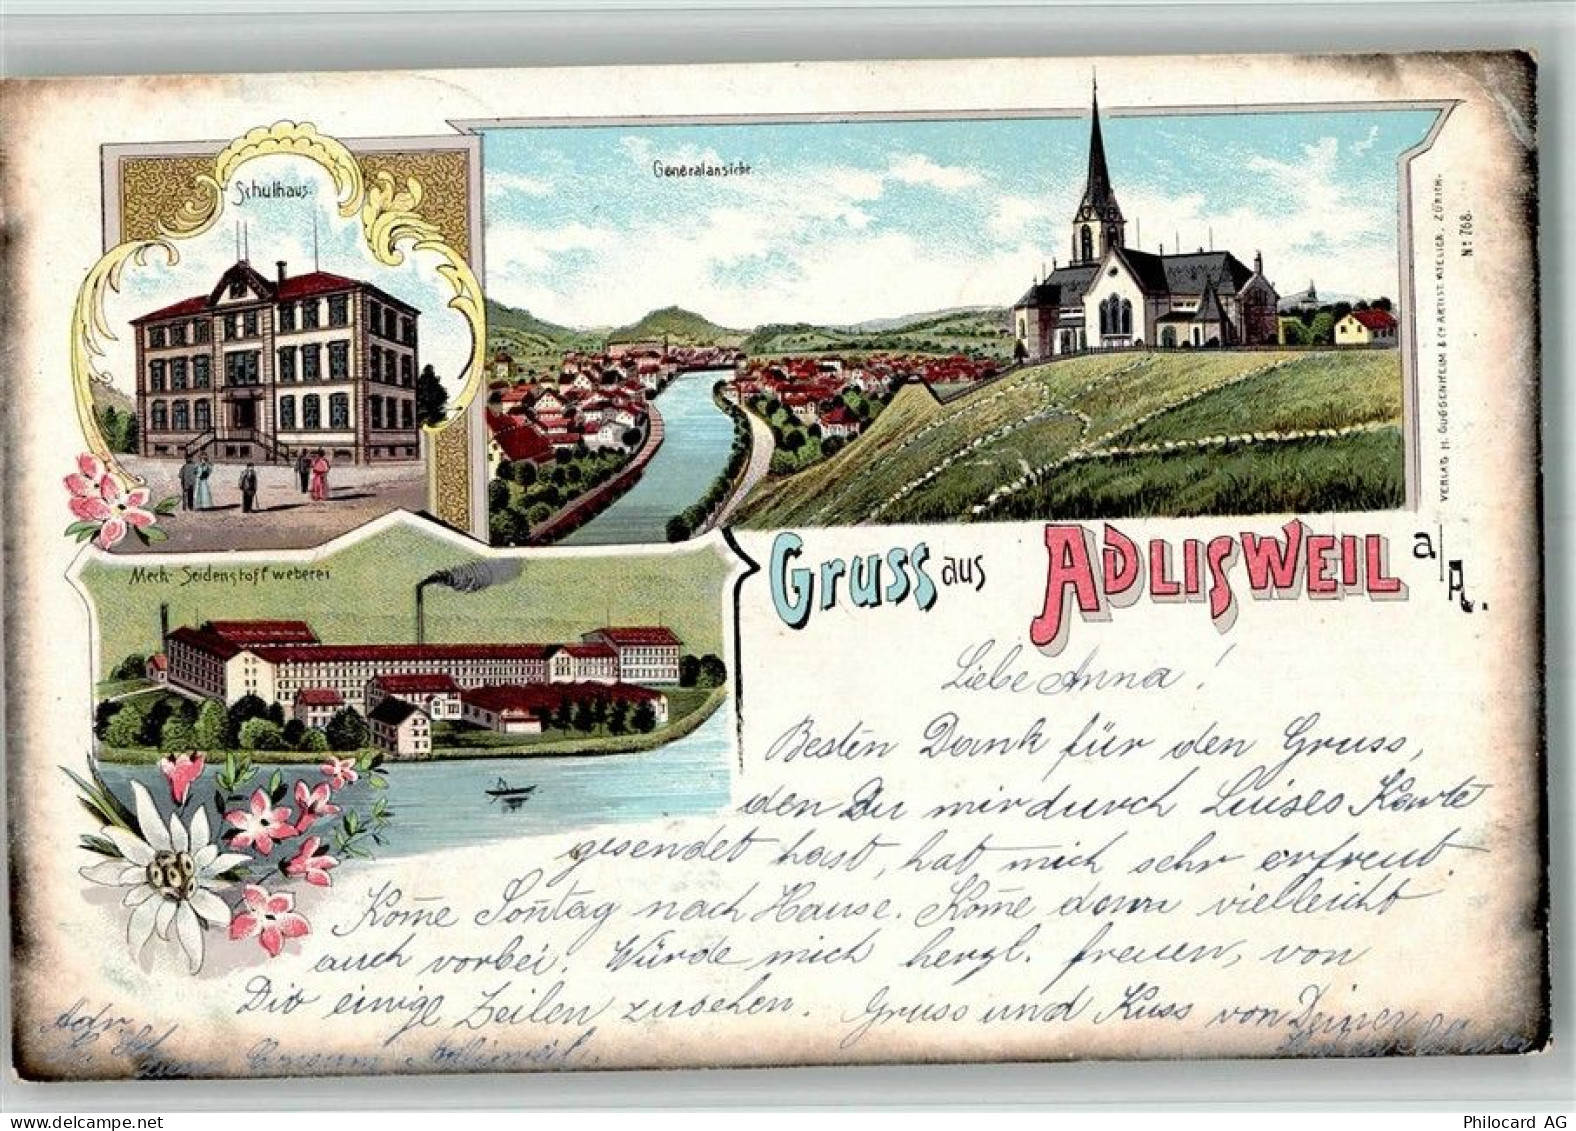 Schulhaus.
Generalansicht
Mech. Seidenstoffweberei
VERLAG H. GUGGENHEIM & Co ARTIST. ATELIER, ZÜRICH.
No 768.
Gruss aus ADLISWEIL a/A.
Liebe Anna!
Besten Dank für den Gruss,
den Du mir durch Luises Karte
gesendet hast, hat mich sehr erfreut.
Kom̄e Son̄tag nach Hause. Kom̄e dann vielleicht
auch vorbei. Würde mich herzl. freuen, von
Dir einige Zeilen zusehen. Gruss und Kuss von Deiner
Adr
Adlisweil.
Philocard.com
Philocard AG